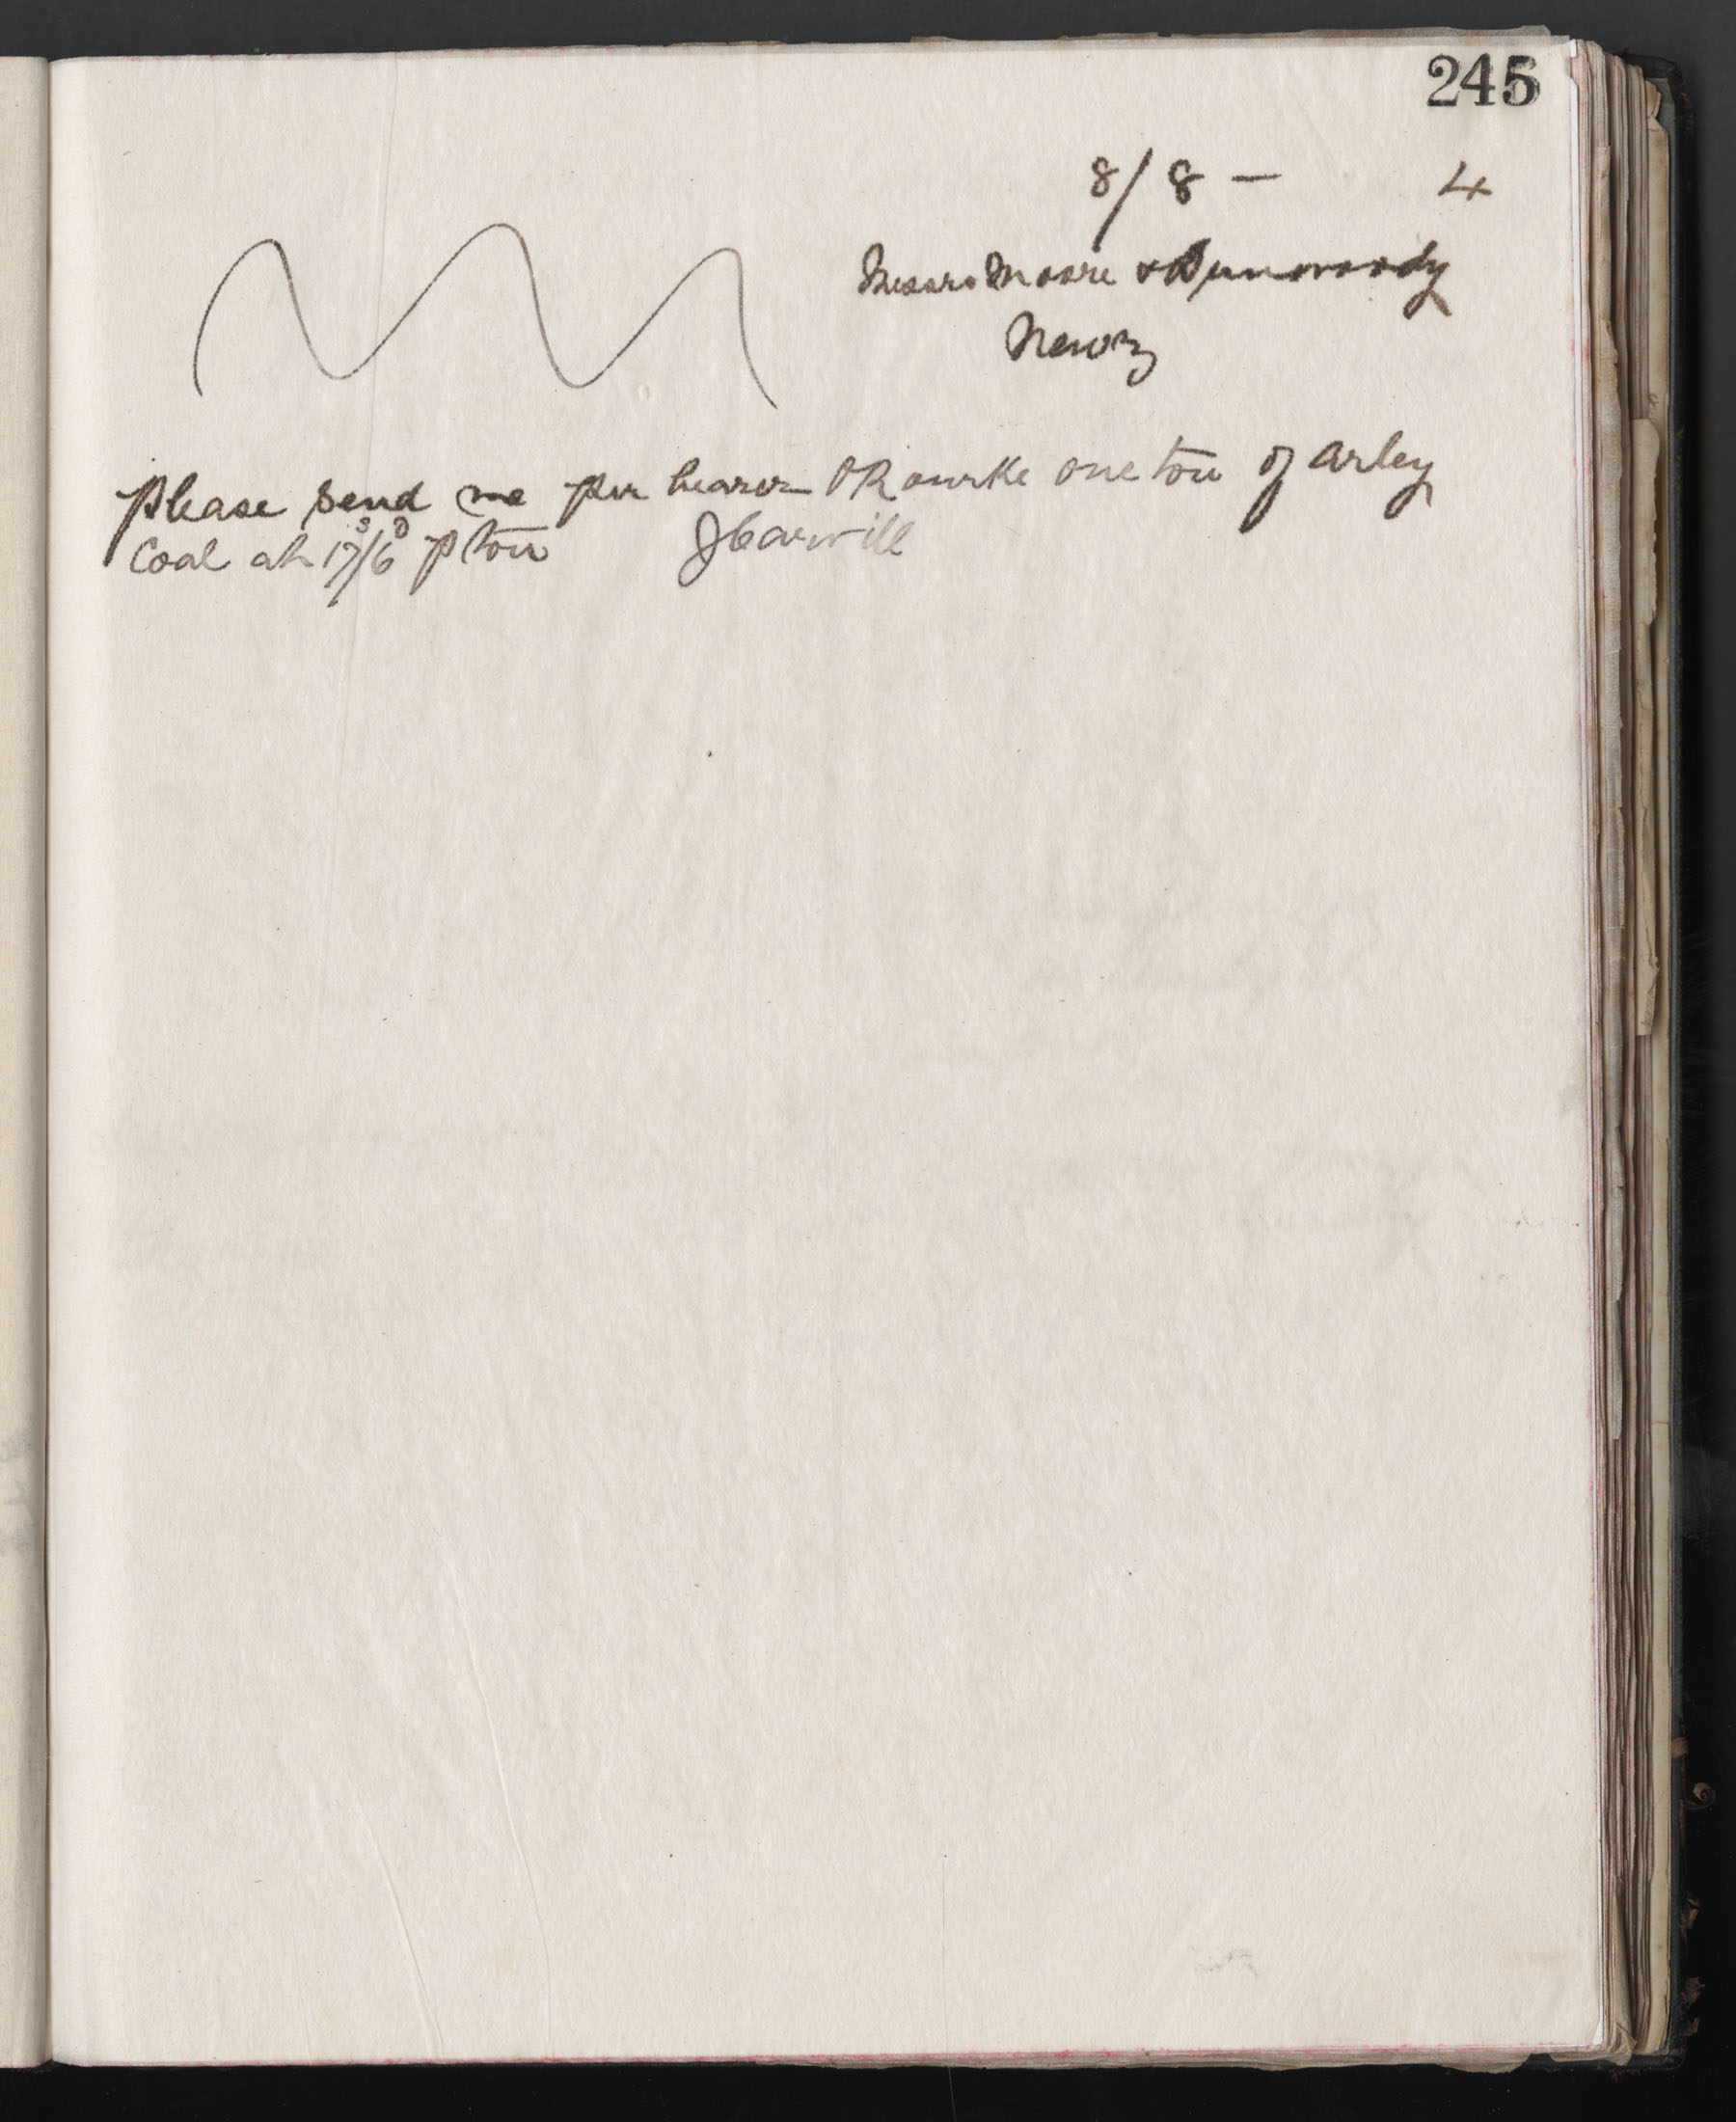 245
8/8 — 4
Messrs Moore & Dunwoody
Newry
Please send me per bearer O'Rourke one ton of Arley
Coal at 17s/6d p ton J Carvill